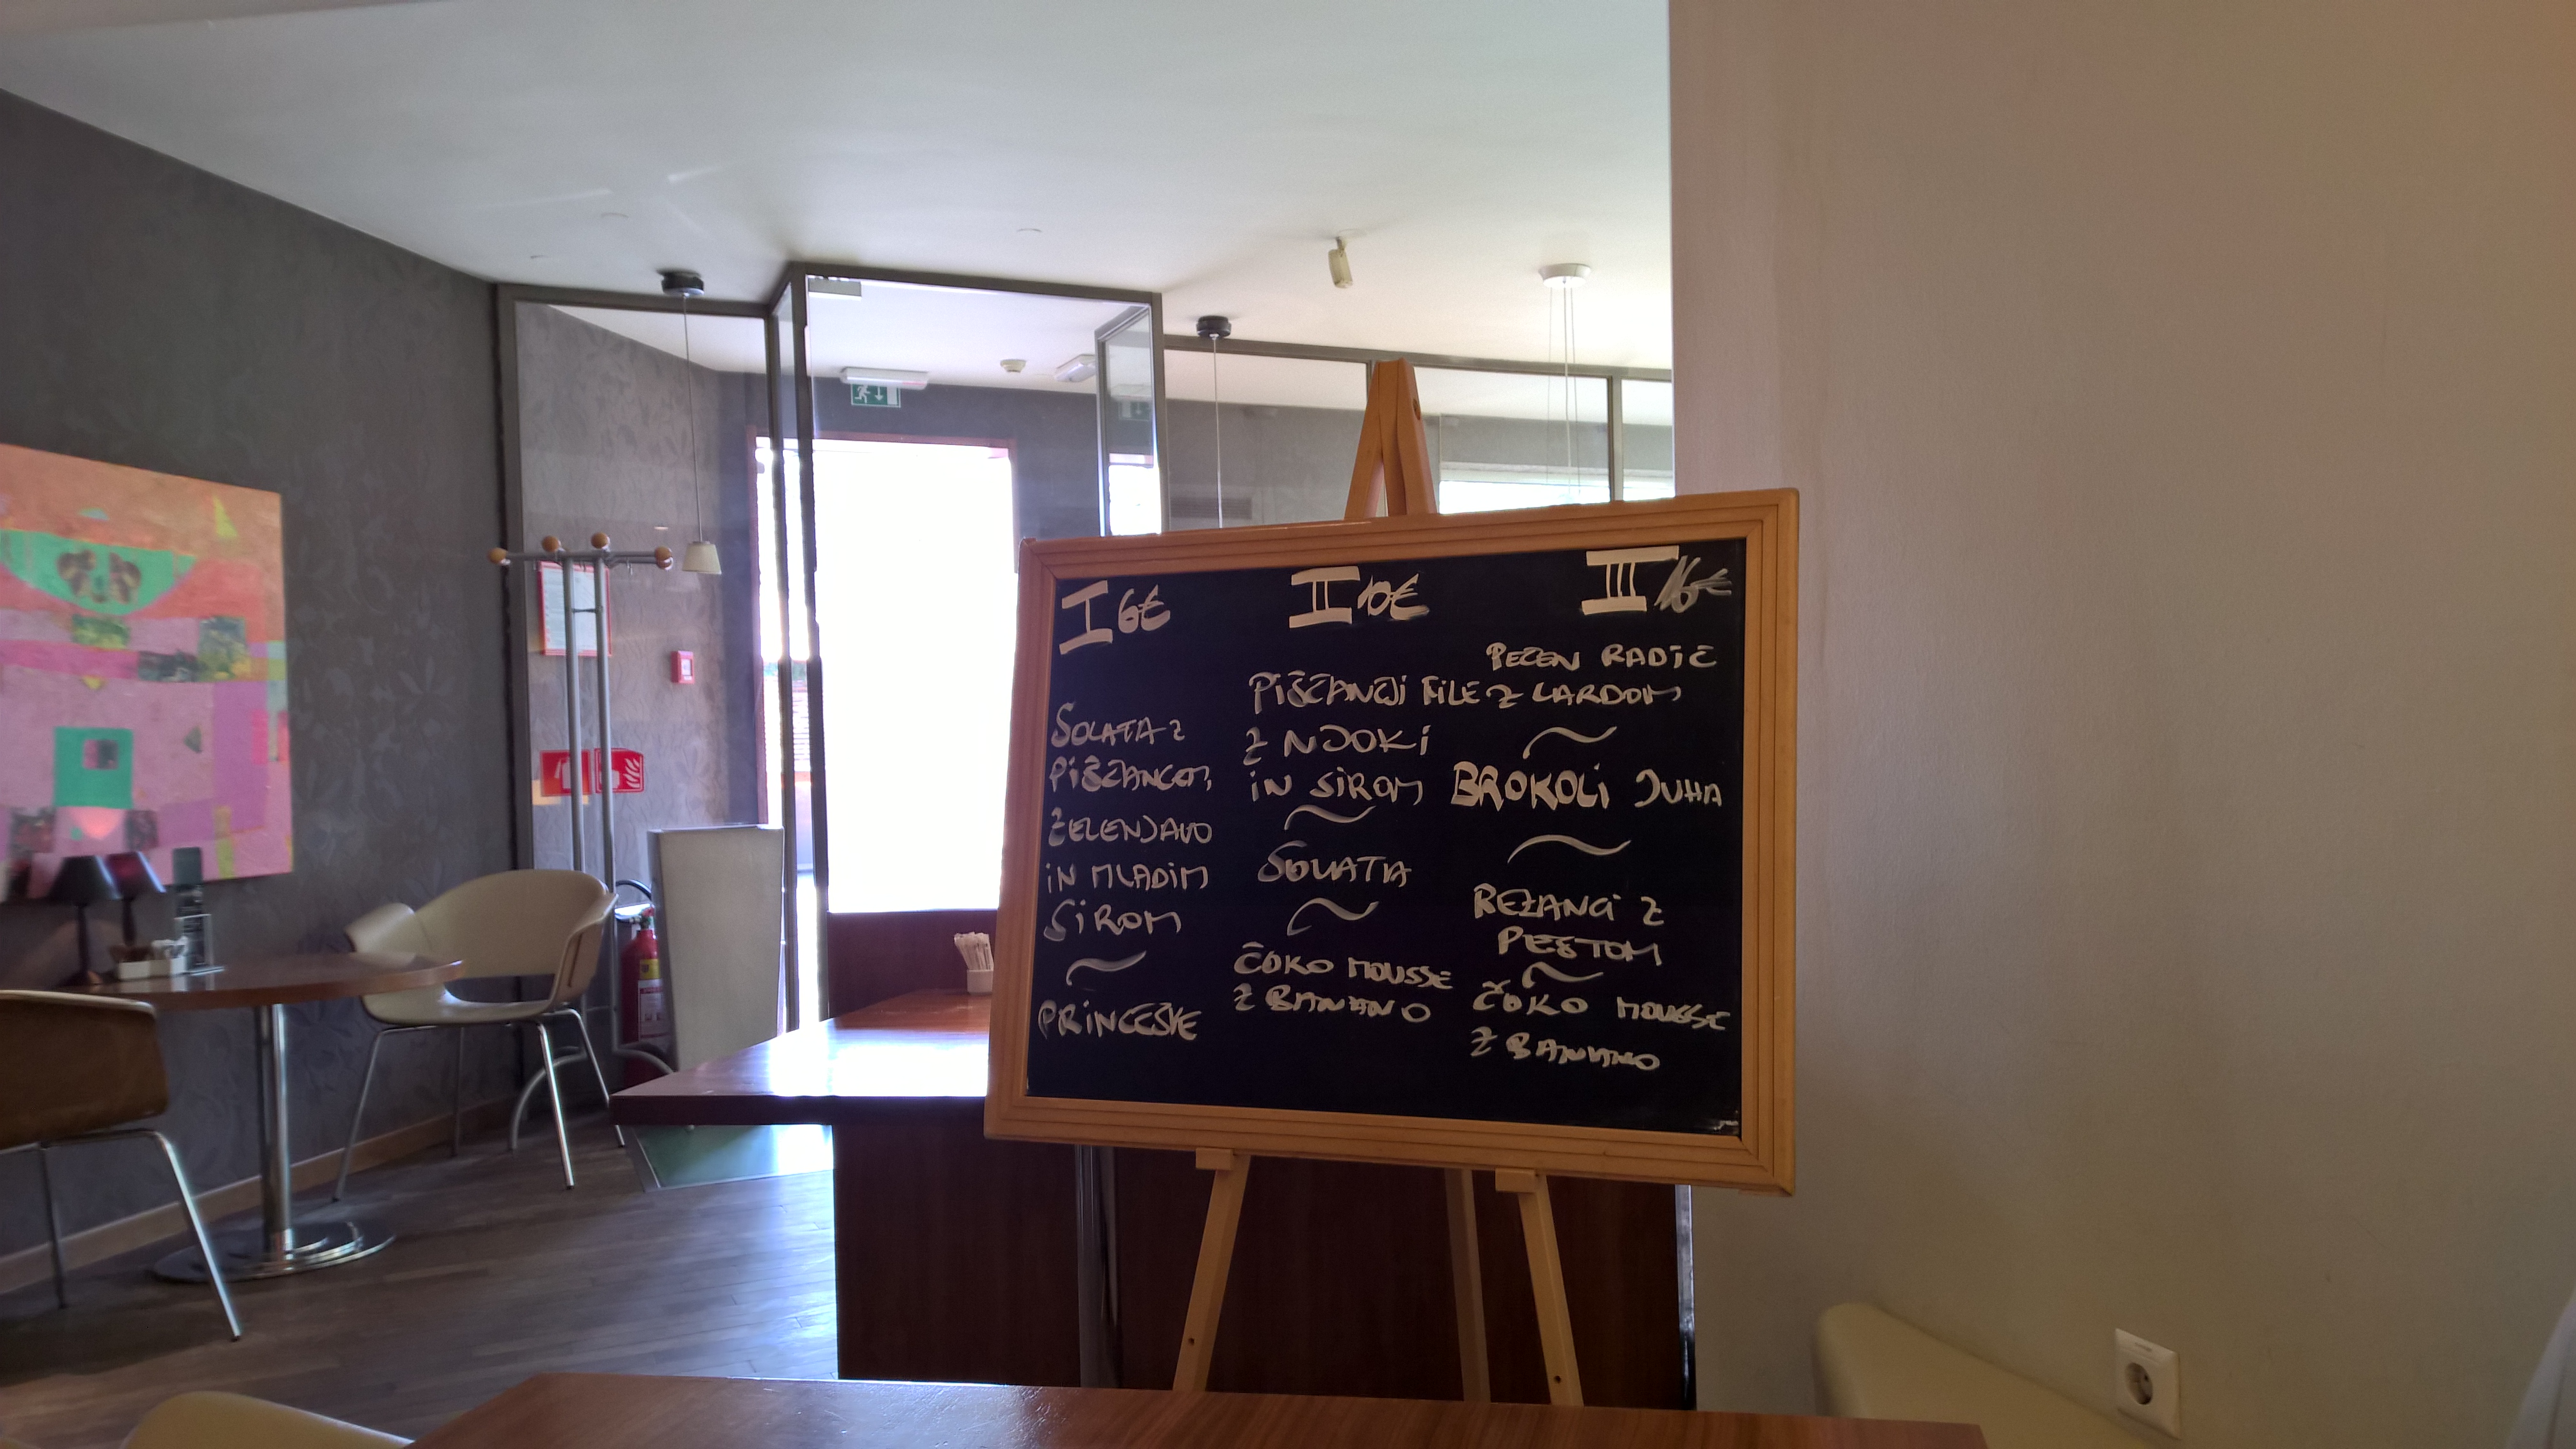 I 6€
SOLATA Z
PIŠČANCEM,
ZELENJAVO
IN MLADIM
SIROM
~
PRINCEŠKE
II 10€
PIŠČANČJI FILE
Z NJOKI
IN SIROM
~
SOLATA
~
ČOKO MOUSSE
Z BANANO
III 16€
PEČEN RADIČ
Z LARDOM
~
BROKOLI JUHA
~
REZANCI Z
PESTOM
~
ČOKO MOUSSE
Z BANANO